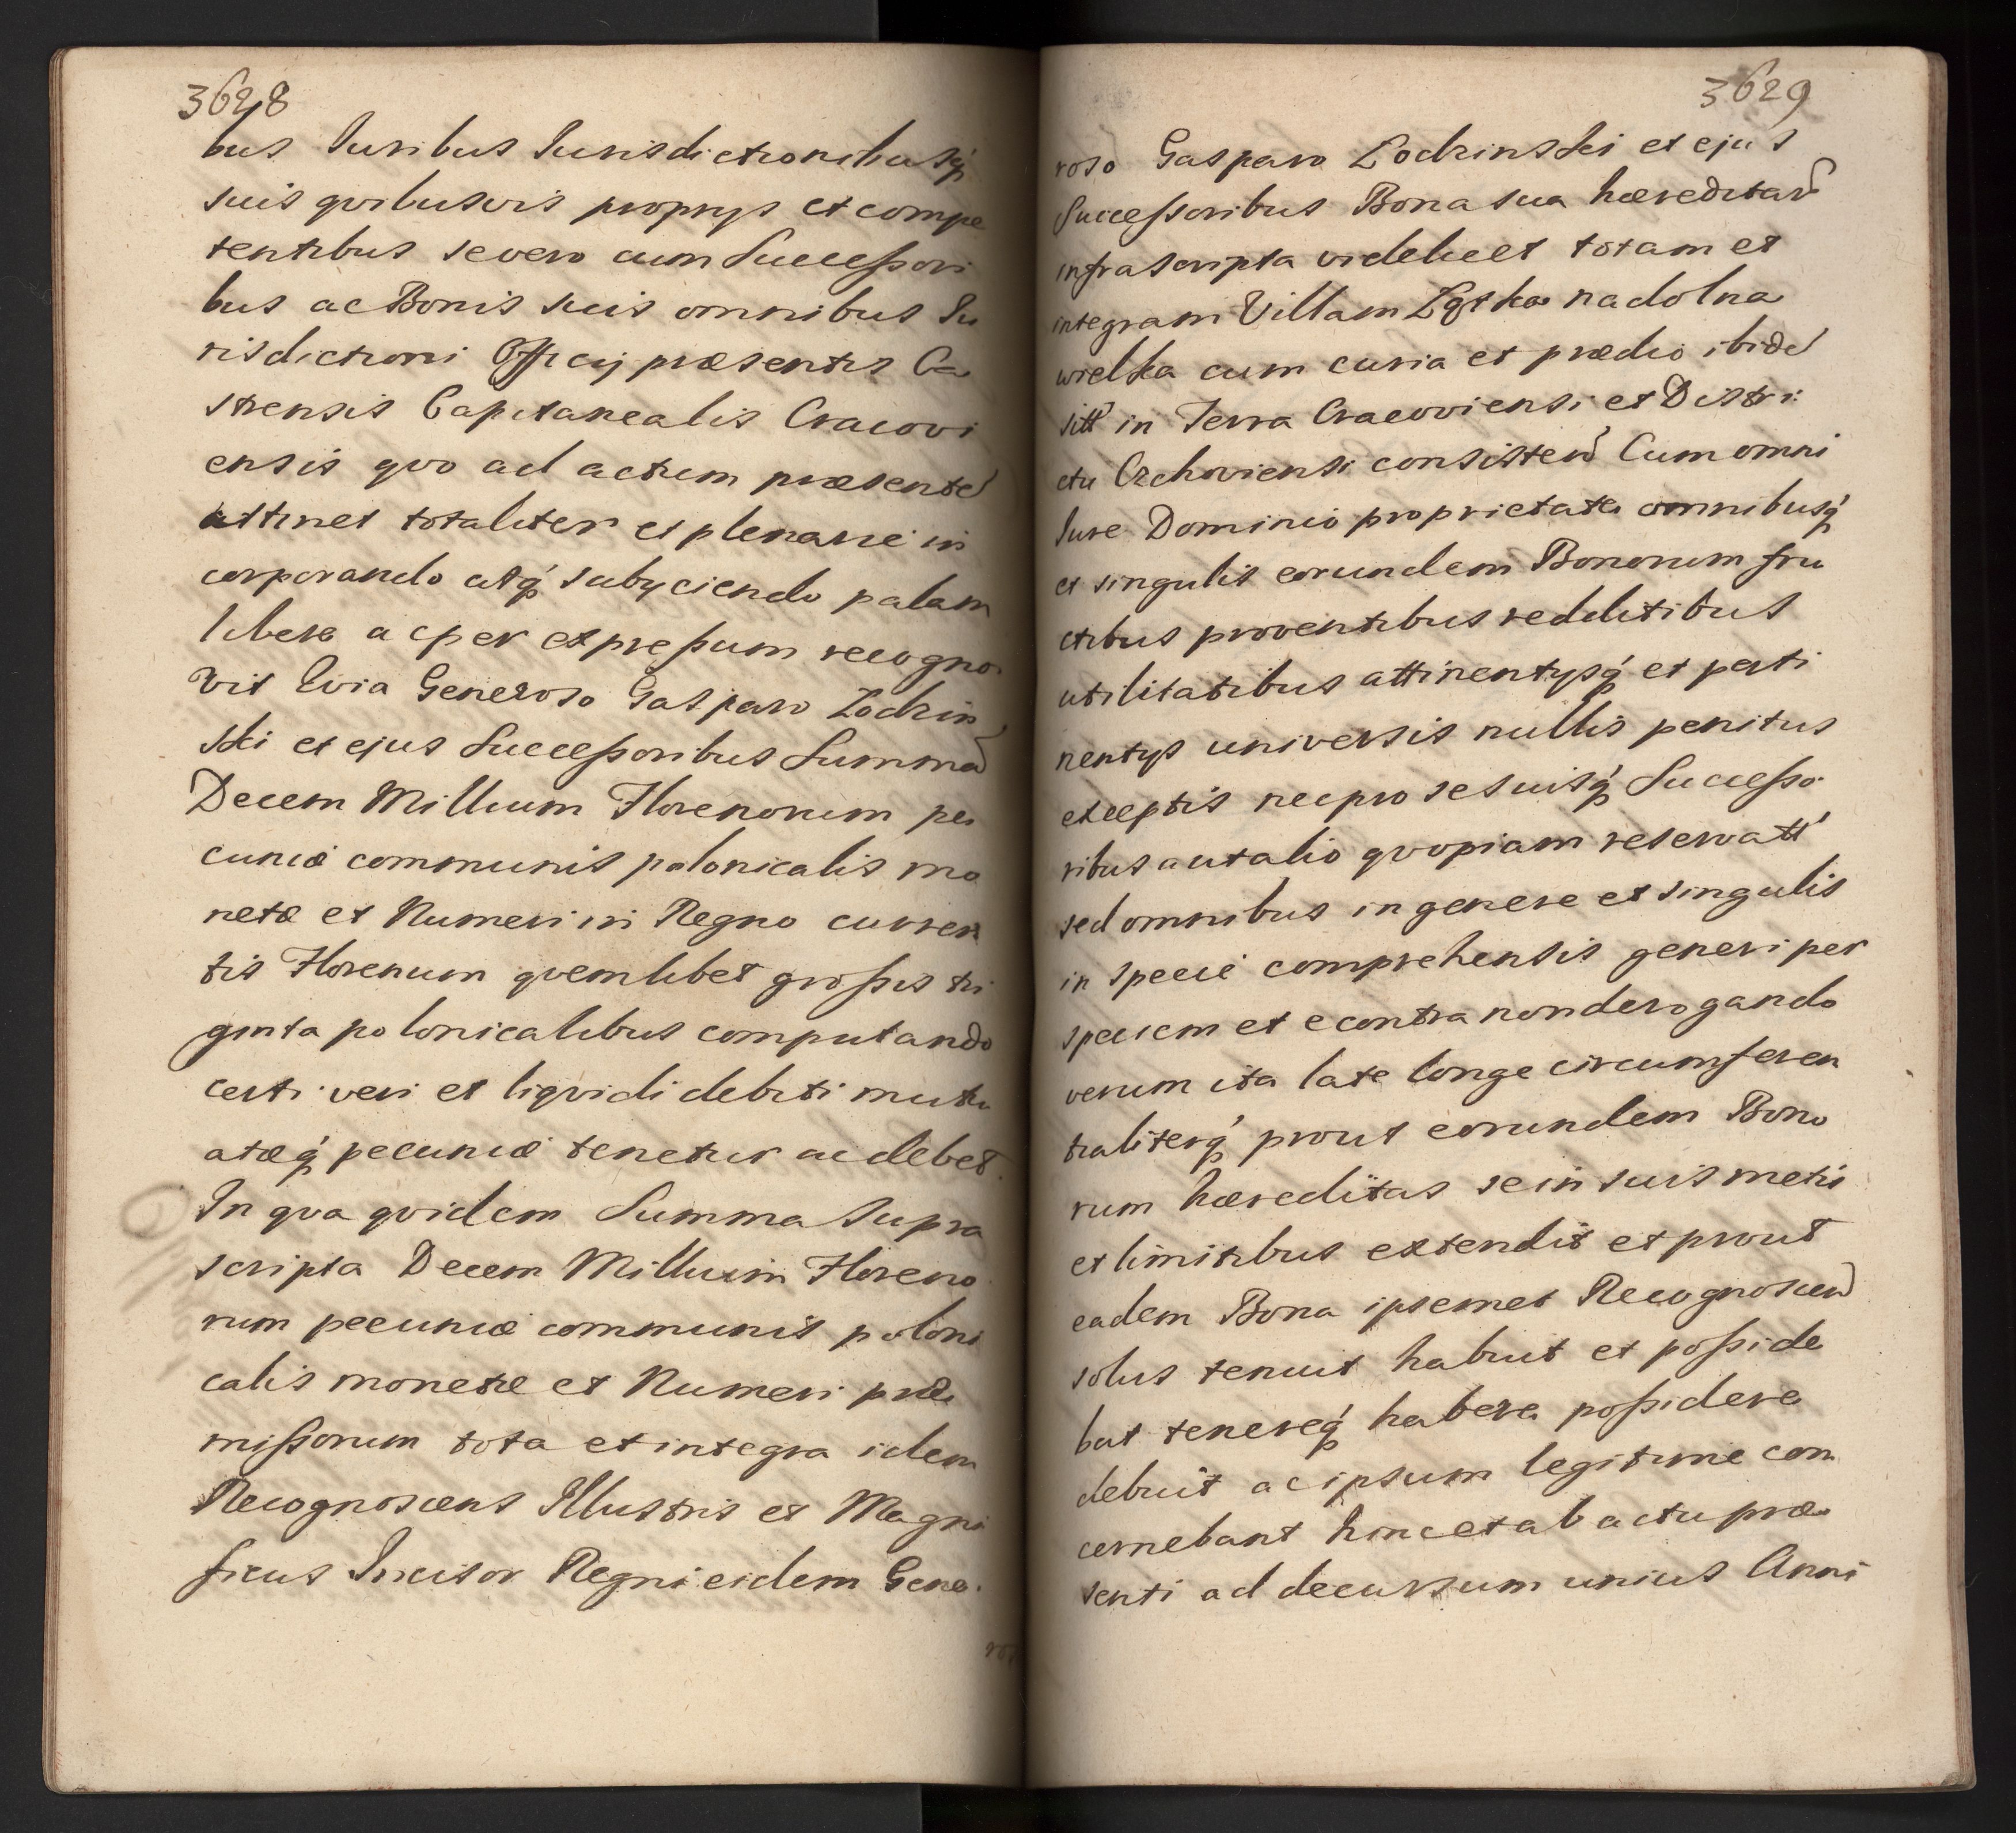 3628
bus Iuribus Iurisdictionibusq́
suis qvibusvis proprys et compe
tentibus se vero cum Successori
bus ac Bonis suis omnibus Iu
risdictioni Officij præsentis Ca
strensis Capitanealis Cracovi
ensis qvo ad actum præsente
attinet totaliter et plenarie in
corporando atq́ subyciendo palam
libere ac per expressum recogno
vit Qvia Generoso Gasparo Łodzin
ski et ejus Successoribus Summa
Decem Millium Florenorum pe
cuniæ communis polonicalis mo
netæ et Numeri in Regno curren
tis Florenum qvemlibet grossis tri
ginta polonicalibus computando
certi veri et liqvidi debiti mutu
atæq́ pecuniæ tenetur ac debet.
In qva qvidem Summa supra
scripta Decem Millium Floreno
rum pecuniæ communis poloni
calis monetæ et Numeri præ
missorum tota et integra idem
Recognoscens Illustris et Magni
ficus Incisor Regni eidem Gene
ro
3629
roso Gasparo Łodzinski et ejus
Successoribus Bona sua hæreditar
infrascripta videlicet totam et
integram Villam Łąska nadolna
wielka cum curia et prædio ibide
sitt in Terra Cracoviensi et Distri
ctu Czchoviensi consisten Cum omni
Iure Dominio proprietate omnibusq́
et singulis eorundem Bonorum fru
ctibus proventibus redditibus
utilitatibus attinentysq́ et perti
nentys universis nullis penitus
exceptis nec pro se suisq́ Successo
ribus aut alio qvopiam reservatt
sed omnibus in genere et singulis
in specie comprehensis generi per
speciem et econtra non derogando
verum ita late longe circumferen
tialiterq́ prout eorundem Bono
rum hæreditas se in suis metis
et limitibus extendit et prout
eadem Bona ipsemet Recognoscen
solus tenuit habuit et posside
bat tenereq́ habere possidere
debuit ac ipsum legitime con
cernebant hinc et ab actu præ
senti ad decursum unius Anni